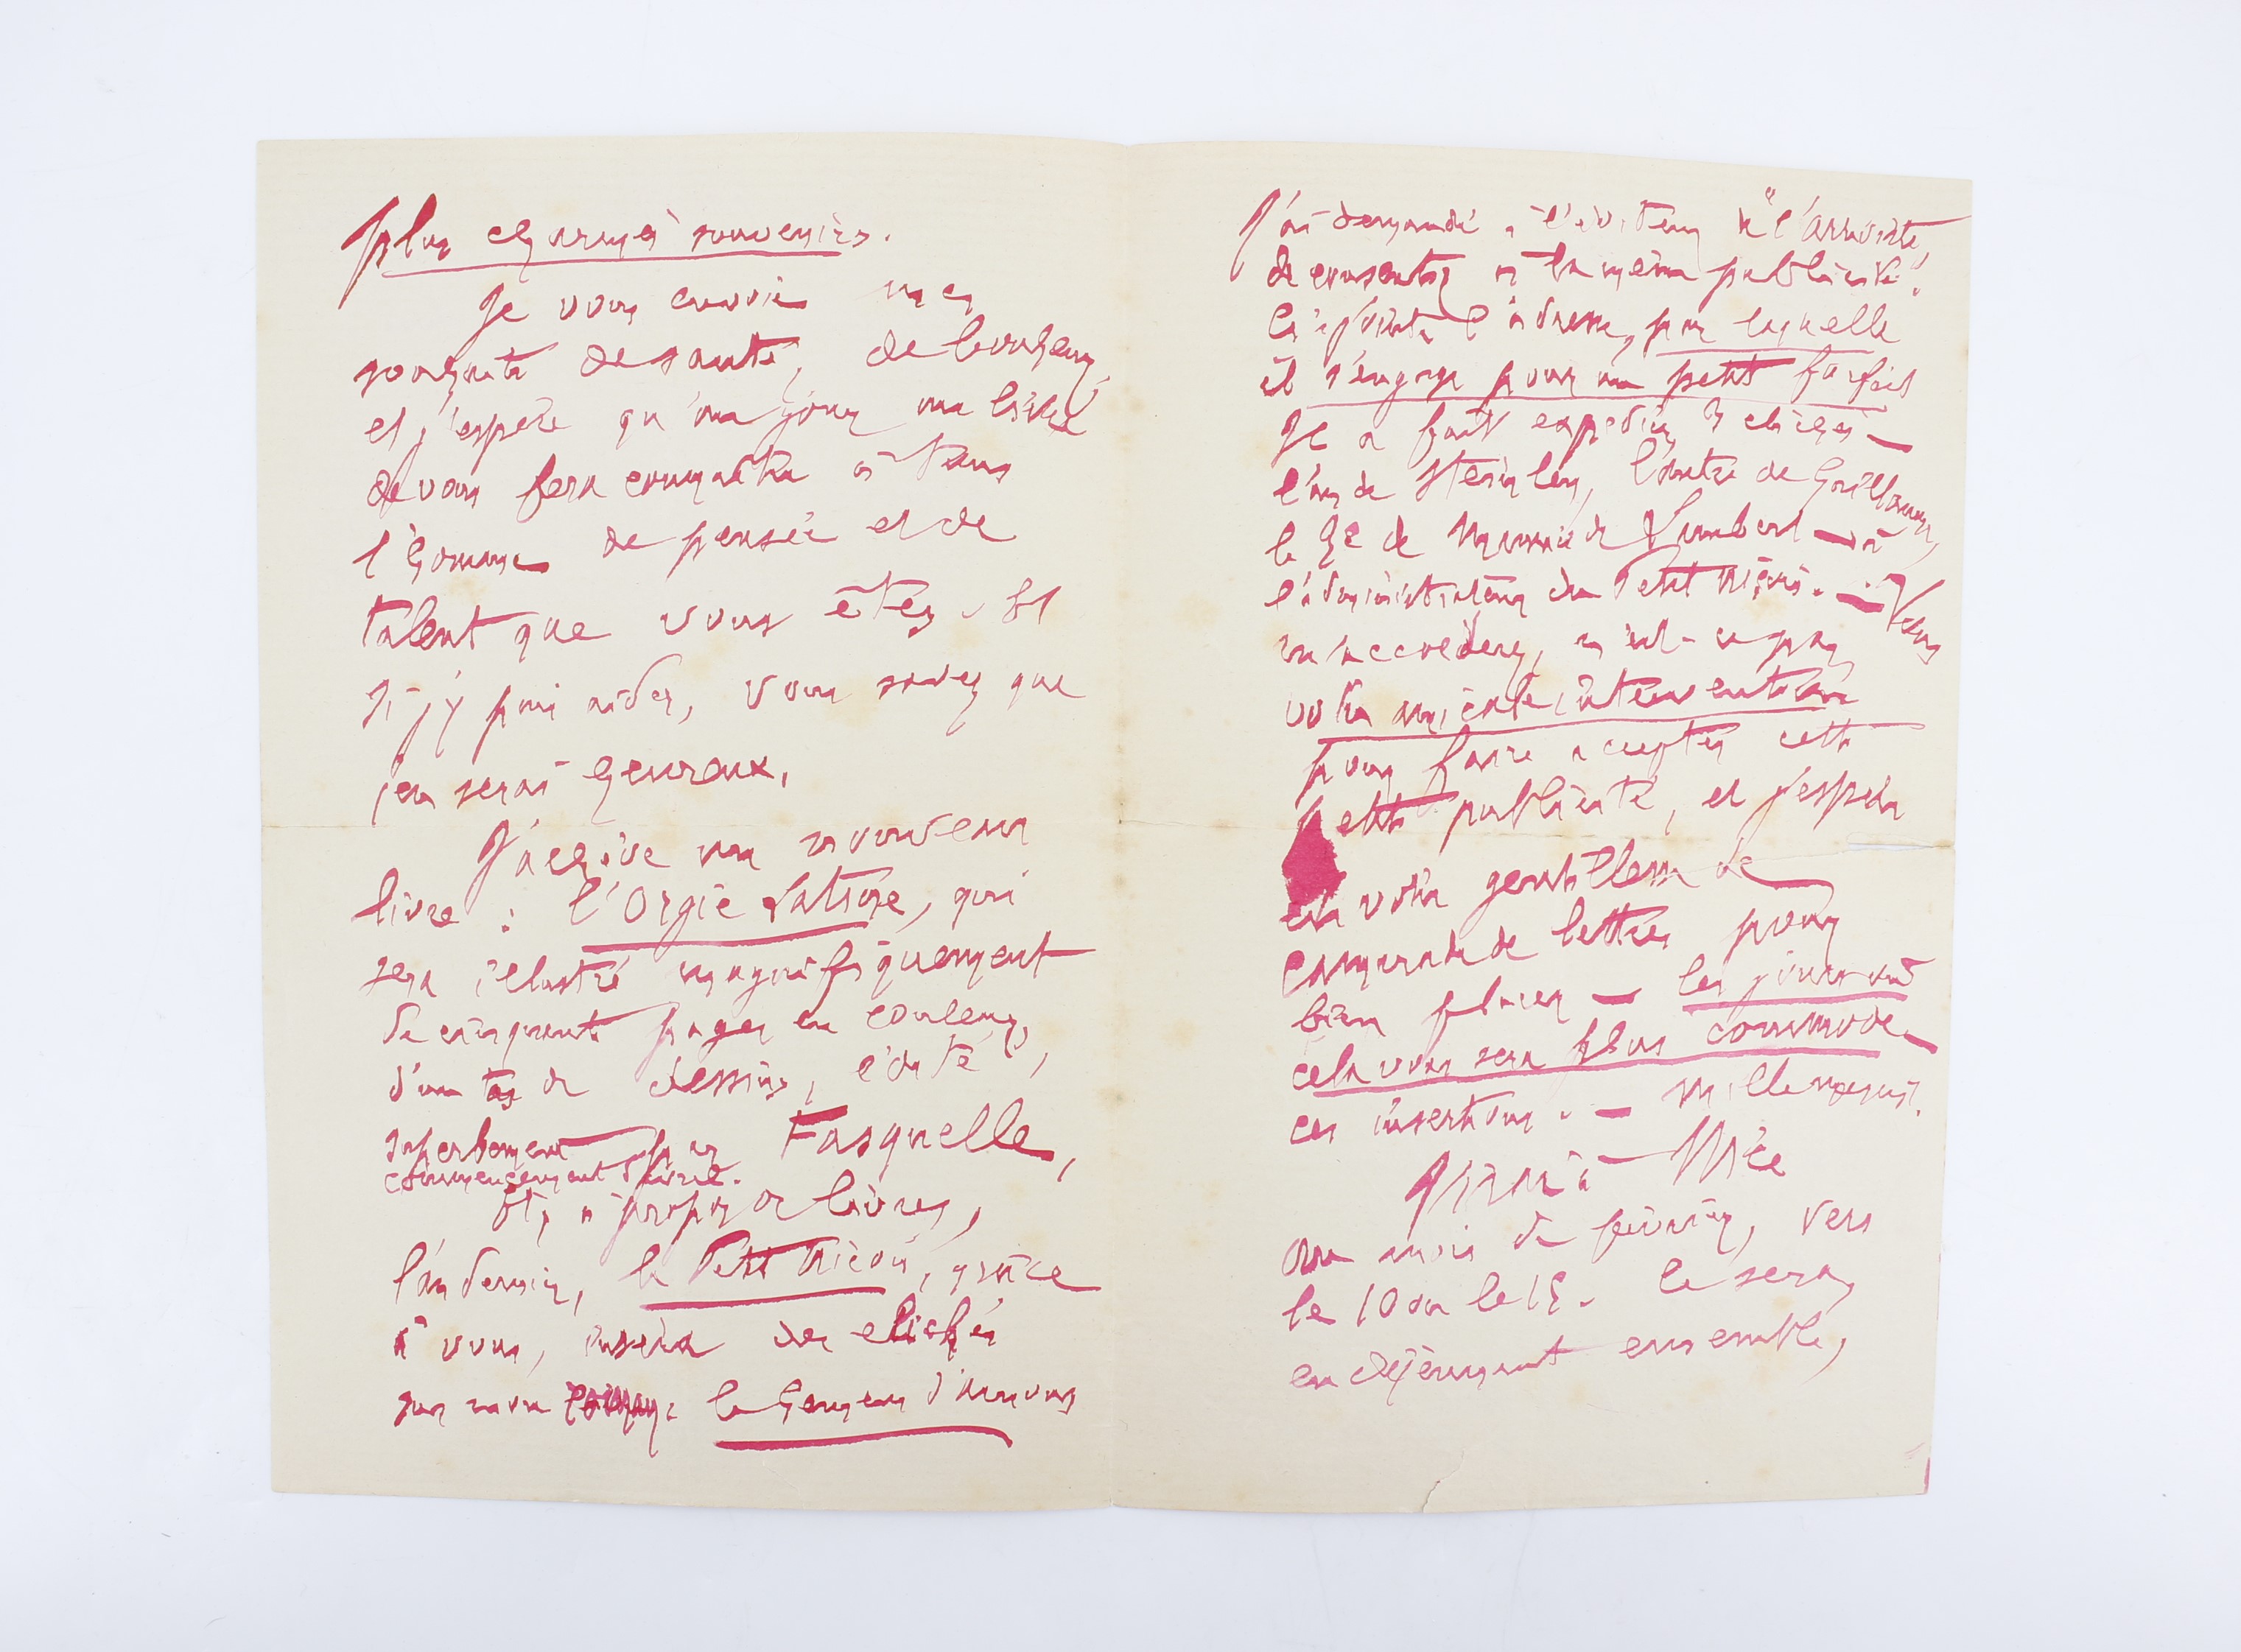 plus charmés souvenirs.
Je vous envoie mes
souhaits de santé, de bonheur,
et j'espère qu'un jour un livre
de vous fera connaître à tous
l'homme de pensée et de
talent que vous êtes. Et
si j'y puis aider, vous savez que
j'en serai heureux.
J'achève un nouveau
livre : l'Orgie Latine, qui
sera illustré magnifiquement
de cinquante pages en couleurs,
d'un tas de dessins, édité,
superbement par Fasquelle,
commencement d'avril.
Et, à propos de livres,
l'an dernier, le Petit Niçois, grâce
à vous, inséra des clichés
sur mon le Chemin d'amour
J'ai demandé à l'éditeur de "l'Arriviste"
de consentir à la même publicité.
Ci-jointe l'adresse, par laquelle
il s'engage pour un petit forfait
Je a fait expédier 3 clichés —
l'un de Steinlen, l'autre de Guillaume,
le 3e de Maurice de Lambert — à
l'administrateur du Petit Niçois. — Vous
m'accorderez, n'est-ce pas,
votre amicale intervention
pour faire accepter cette
petite publicité, et j'espère
en votre gentillesse de
camarade de lettres pour
bien placer — les jours où
cela vous sera plus commode —
ces insertions. — Mille mercis.
à Nice
au mois de février, vers
le 10 ou le 15. Ce sera,
en déjeunant ensemble,